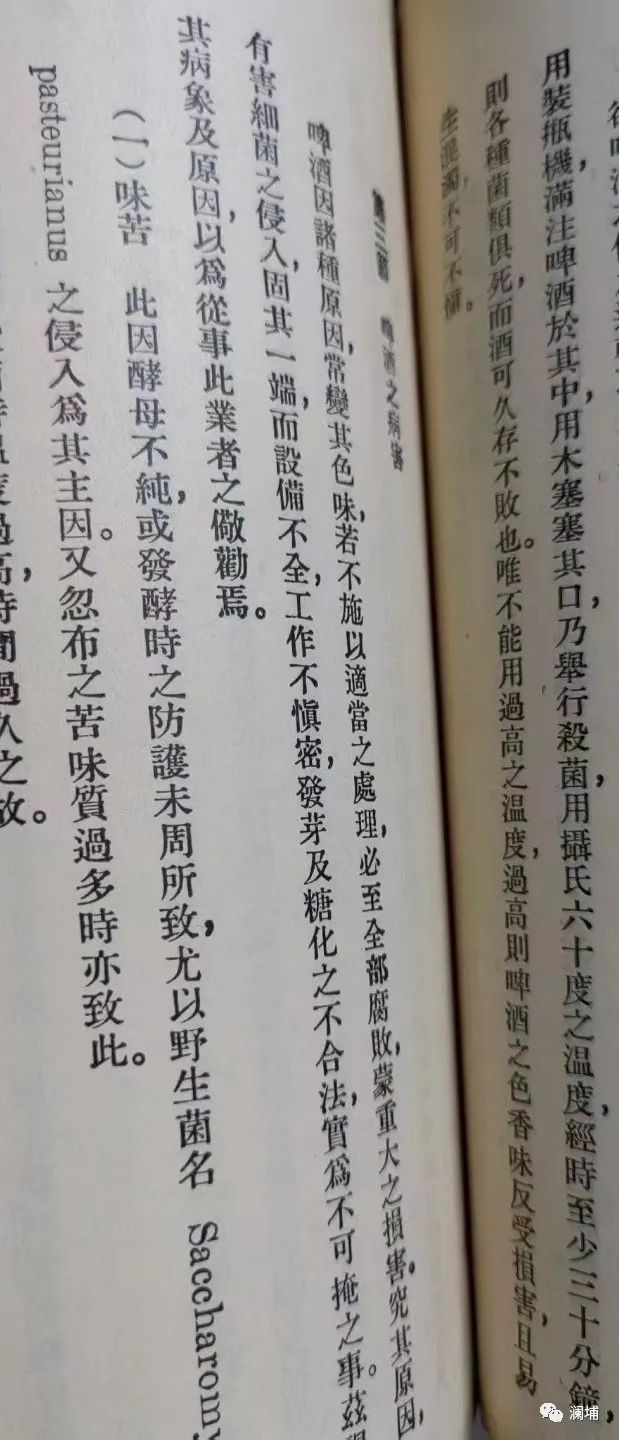 用裝瓶機滿注啤酒於其中，用木塞塞其口，乃舉行殺菌，用攝氏六十度之溫度，經時至少三十分鐘，
則各種菌類俱死，而酒可久存不敗也。唯不能用過高之溫度，過高則啤酒之色香味反受損害，且易
生混濁，不可不慎。
第三節 啤酒之病害
啤酒因諸種原因，常變其色味，若不施以適當之處理，必至全部腐敗，蒙重大之損害。究其原因，
有害細菌之侵入，固其一端，而設備不全，工作不愼密，發芽及糖化之不合法，實爲不可掩之事。茲
其病象及原因，以爲從事此業者之儆勸焉。
（一）味苦 此因酵母不純，或發酵時之防護未周所致，尤以野生菌名 Saccharomy
pasteurianus 之侵入爲其主因。又忽布之苦味質過多時亦致此。
度過高，時間過久之故。
澜埔